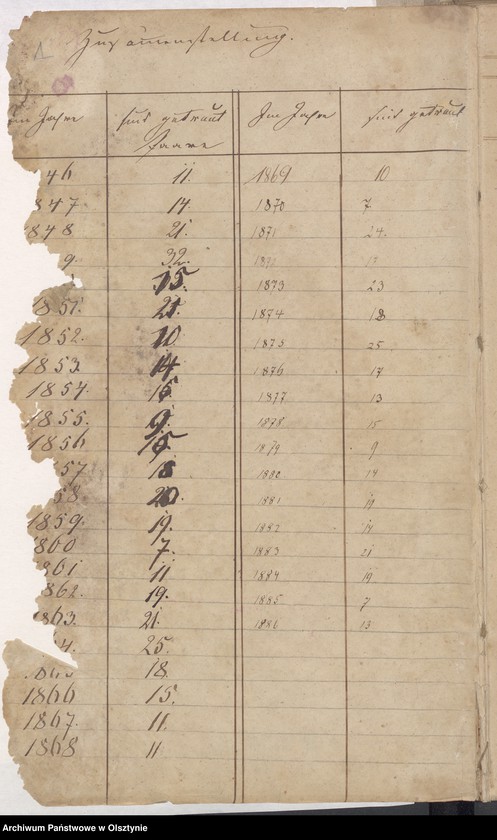 1
Zusammenstellung.
im Jahre | sind getraut Paare | Im Jahre | sind getraut
46 | 11. | 1869 | 10
847 | 14. | 1870 | 7
848 | 21. | 1871 | 24.
9. | 32. | 
15. | 1873 | 23
1851. | 21. | 1874 | 18
1852. | 10 | 1875 | 25.
1853. | 14 | 1876 | 17
1854. | 15 | 1877 | 13
1855. | 9. | 1878 | 15
1856 | 15 | 1879 | 9
57. | 18 | 1880 | 14
58. | 20. | 1881 | 19
1859. | 19. | 1882 | 14
1860 | 7. | 1883 | 21
861 | 11 | 1884 | 19
862. | 19. | 1885 | 7
863. | 21. | 1886 | 13
4. | 25.
18.
1866 | 15.
1867. | 11.
1868 | 11
Archiwum Państwowe w Olsztynie